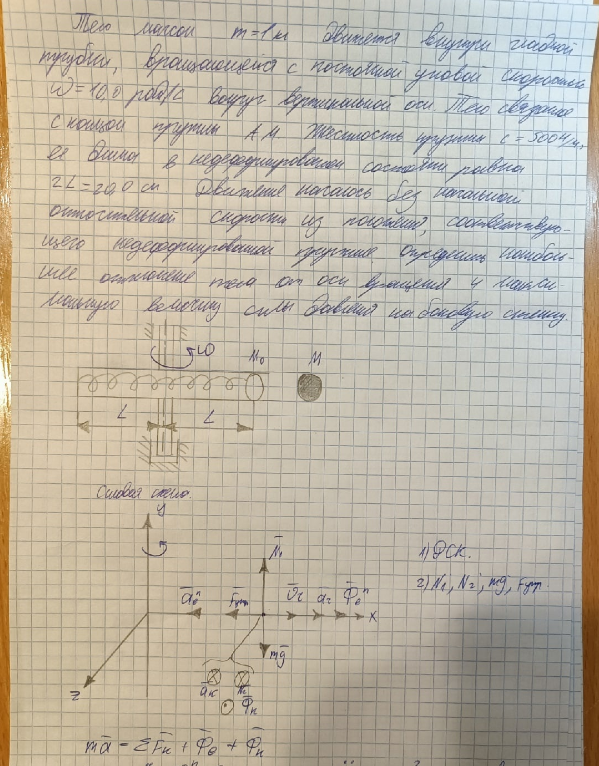 Тело массой m=1 кг движется внутри гладкой
трубки, вращающейся с постоянной угловой скоростью
ω=10,0 рад/с вокруг вертикальной оси. Тело связано
с концом пружины А.М Жесткость пружины c=500Н/м,
ее длина в недеформированном состоянии равна
2L=20,0 см Движение началось без начальной
относительной скорости из положения, соответствую-
щего недеформированной пружине определить наиболь-
шее отклонение тела от оси вращения и макси-
мальную величину силы давления на боковую стенку.
ω M₀ M
L L
Силовая схема.
y
N̄₁
1) ДСК.
2) N₁, N₂, mg, Fупр.
āₑⁿ F̄упр v̄r ār Φ̄ₑⁿ x
mḡ
z
āк N̄₂
Φ̄к
mā = ΣF̄к + Φ̄ₑ + Φ̄к